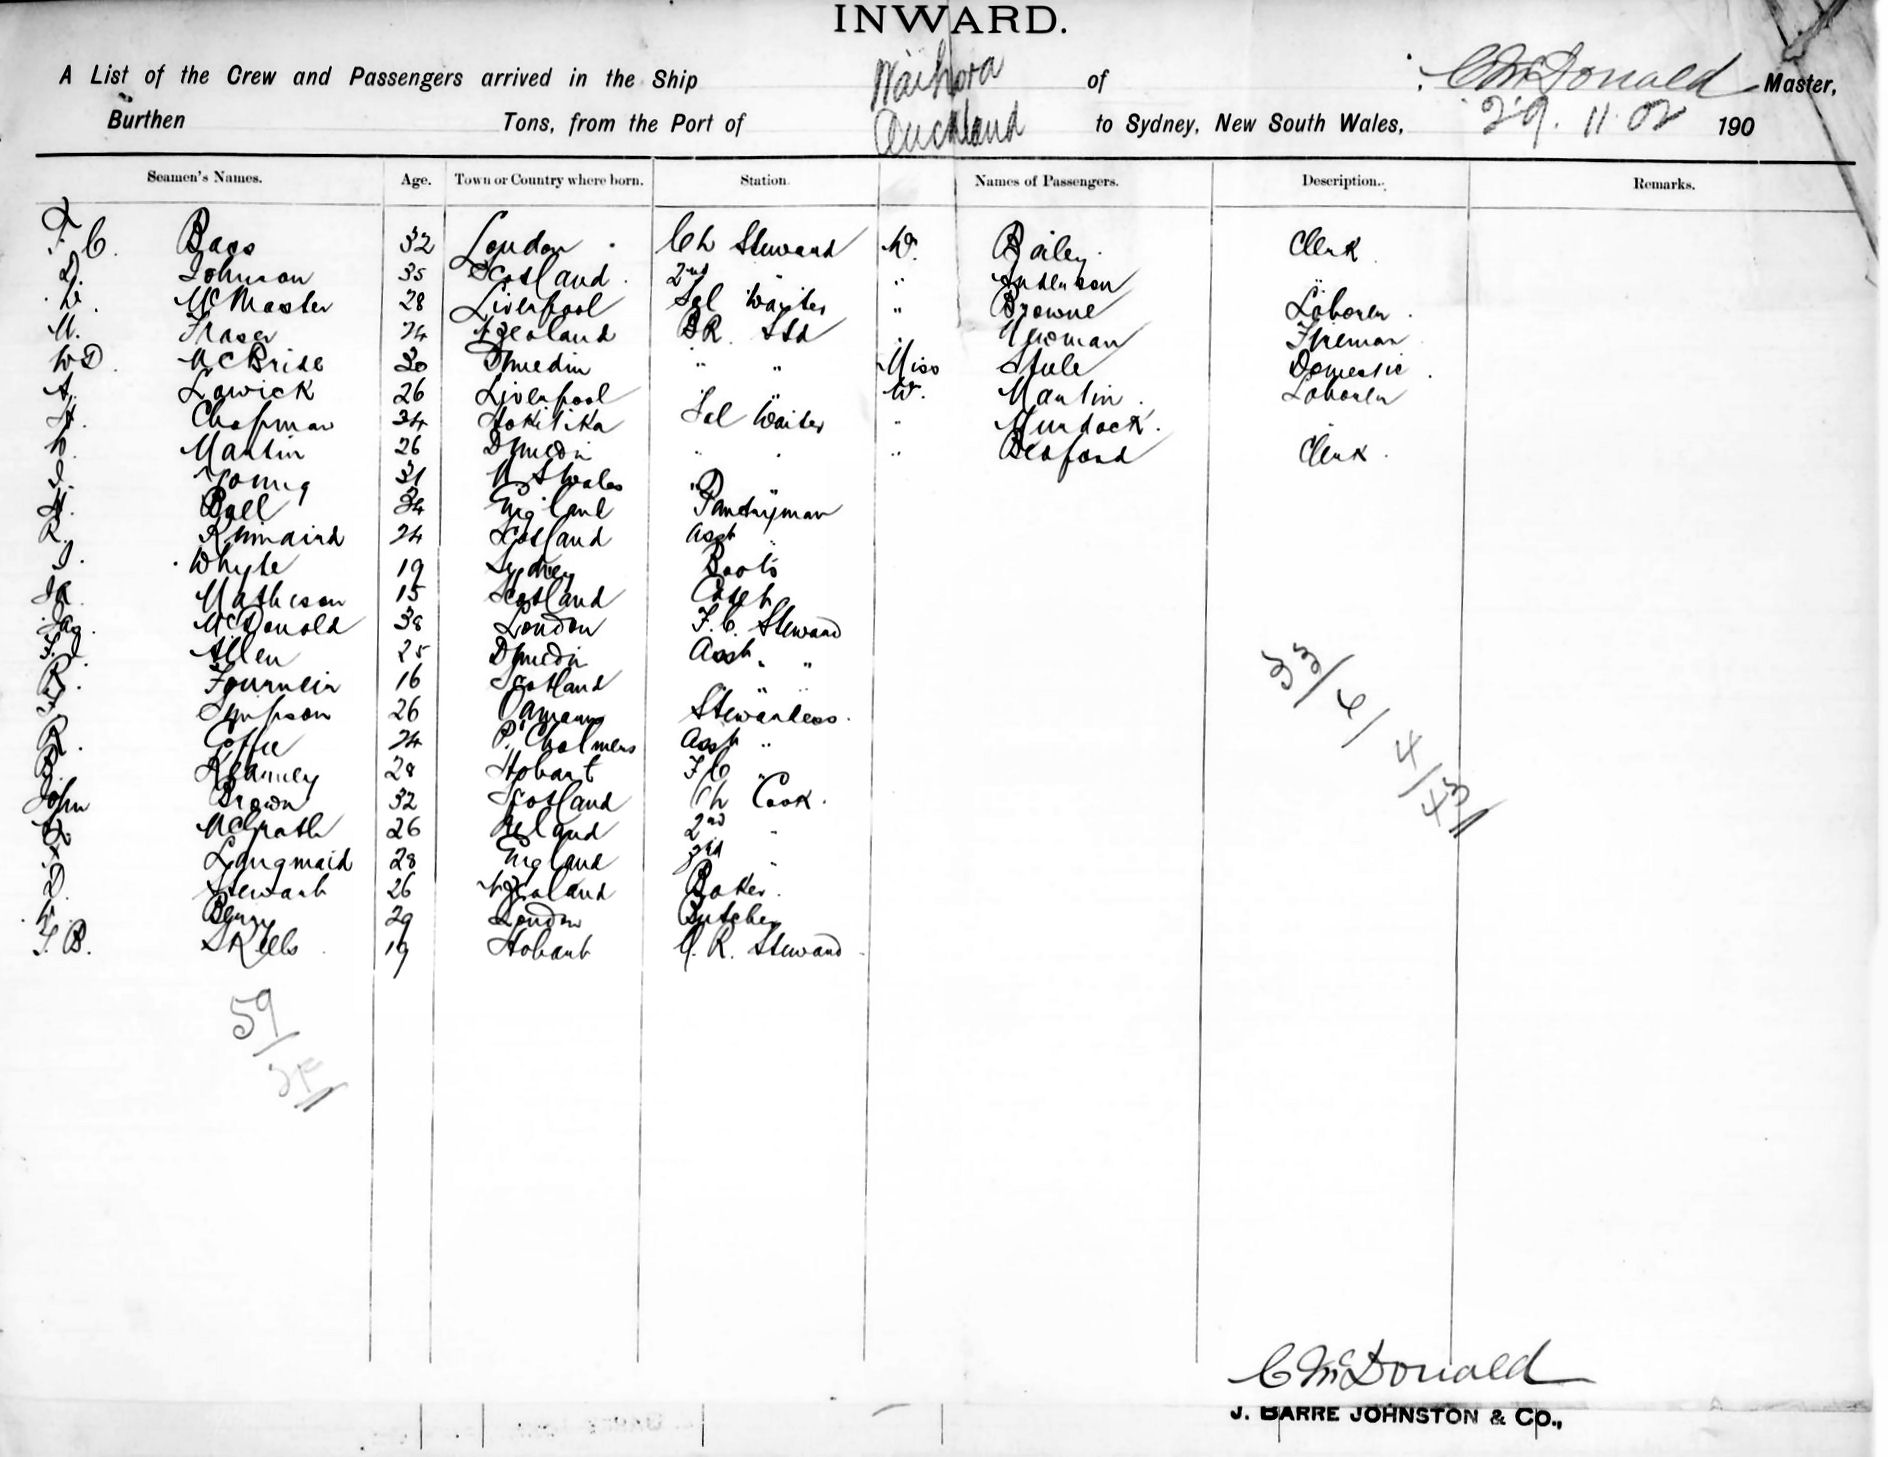 INWARD.
A List of the Crew and Passengers arrived in the Ship Waihora of C McDonald Master,
Burthen Tons, from the Port of Auckland to Sydney, New South Wales, 29. 11. 02 190
Seamen's Names. Age. Town or Country where born. Station. Names of Passengers. Description. Remarks.
F. C. Bass 32 London Ch Steward W. Bailey Clerk
D. Johnson 35 Scotland 2nd " " Anderson "
McMaster 28 Liverpool Sal Waiter " Browne Laborer
M. Fraser 24 N Zealand B R. Std Fireman
W D. McBride 30 Dunedin " " Miss Domestic
A. Lawick 26 Liverpool " " W. Martin Laborer
Chapman 34 Hokitika Sal Waiter " Murdock
Martin 26 Dunedin " " " Bedford Clerk
Young 31 N S Wales " "
Ball 34 England Pantryman
R. Kinnaird 24 Scotland Asst "
Whyte 19 Sydney Boots
Matheson 15 Scotland
Jas. McDonald 38 London F. C. Steward
Allen 25 Dunedin Asst " "
Fournein 16 Scotland " "
Simpson 26 Oamaru Stewardess
24 P. Chalmers Asst "
Kearney 28 Hobart F C "
John Brown 32 Scotland Ch Cook
McGrath 26 Ireland 2nd "
Langmaid 28 England 3rd "
D. Stewart 26 N Zealand Baker
W. Berry 29 London Butcher
F. B. Skeels 19 Hobart C. R. Steward
33/6/4/43
59/
C McDonald
J. BARRE JOHNSTON & Co.,